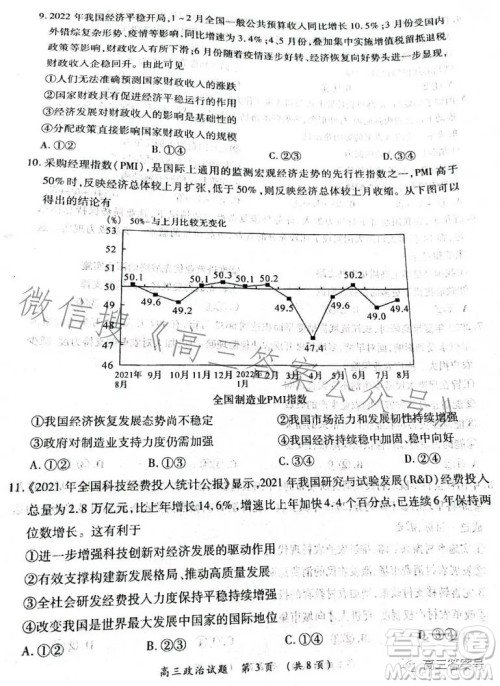 9. 2022 年我国经济平稳开局,1－2 月全国一般公共预算收入同比增长 10.5%;3 月份受国内
外错综复杂形势、疫情等影响,增速回落为 3.4%;4、5 月份,叠加实施增值税留抵退税政
策等影响,财政收入有所下降;6 月随着疫情逐步好转、经济恢复向好势头进一步显现,
财政收入企稳回升。由此可见
①人们无法预测国家财政收入的涨跌
②国家财政具有促进经济平稳运行的作用
③经济发展对财政收入有着重要的影响
④分配政策直接影响国家财政收入的高低
A. ①② B. ①④ C. ②③ D. ③④
10. 采购经理指数(PMI),是国际上通用的监测宏观经济走势的先行性指数之一,PMI 高于
50%时,反映经济总体较上月扩张,低于 50%,则反映经济总体较上月收缩。从下图可以
得出的结论有
(%) 50%=与上月比较无变化
52
51
50
49
48
47
46
50.1 49.6 49.2 50.1 50.3 50.1 50.2 49.5 47.4 49.6 50.2 49.0 49.4
2021年 9月 10月 11月 12月 2022年 2月 3月 4月 5月 6月 7月 8月
8月 1月
全国制造业PMI指数
①我国经济恢复发展态势尚不稳定 ②我国市场活力和发展韧性持续增强
③政府对制造业支持力度仍需加强 ④我国综合实力和国际影响力持续增强
A. ①③ B. ①④ C. ②③ D. ②④
11.《2021 年全国科技经费投入统计公报》显示,2021 年我国研究与试验发展(R&D)经费投入
总量为 2.8 万亿元,比上年增长 14.6%,增速比上年加快 4.4 个百分点,已连续 6 年保持两
位数增长。这有利于
①进一步增强科技创新对经济发展的驱动作用
②有效支撑构建新发展格局、推动高质量发展
③全社会研发经费投入力度保持平稳持续增强
④改变我国是世界上最大的发展中国家的国际地位
A. ①② B. ①④ C. ②③ D. ③④
高三政治试题 第 3 页 (共 8 页)
微信搜《高三答案公众号》
高三答案号
答案圈